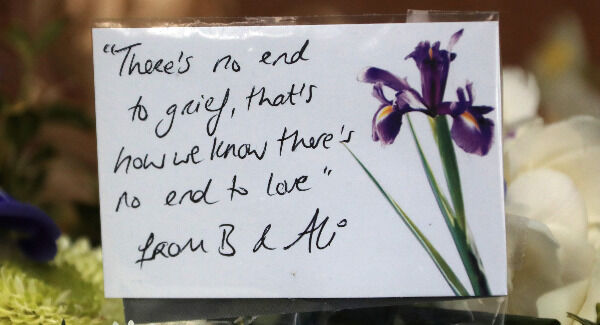 "There's no end
to grief, that's
how we know there's
no end to love"
from B & Ali